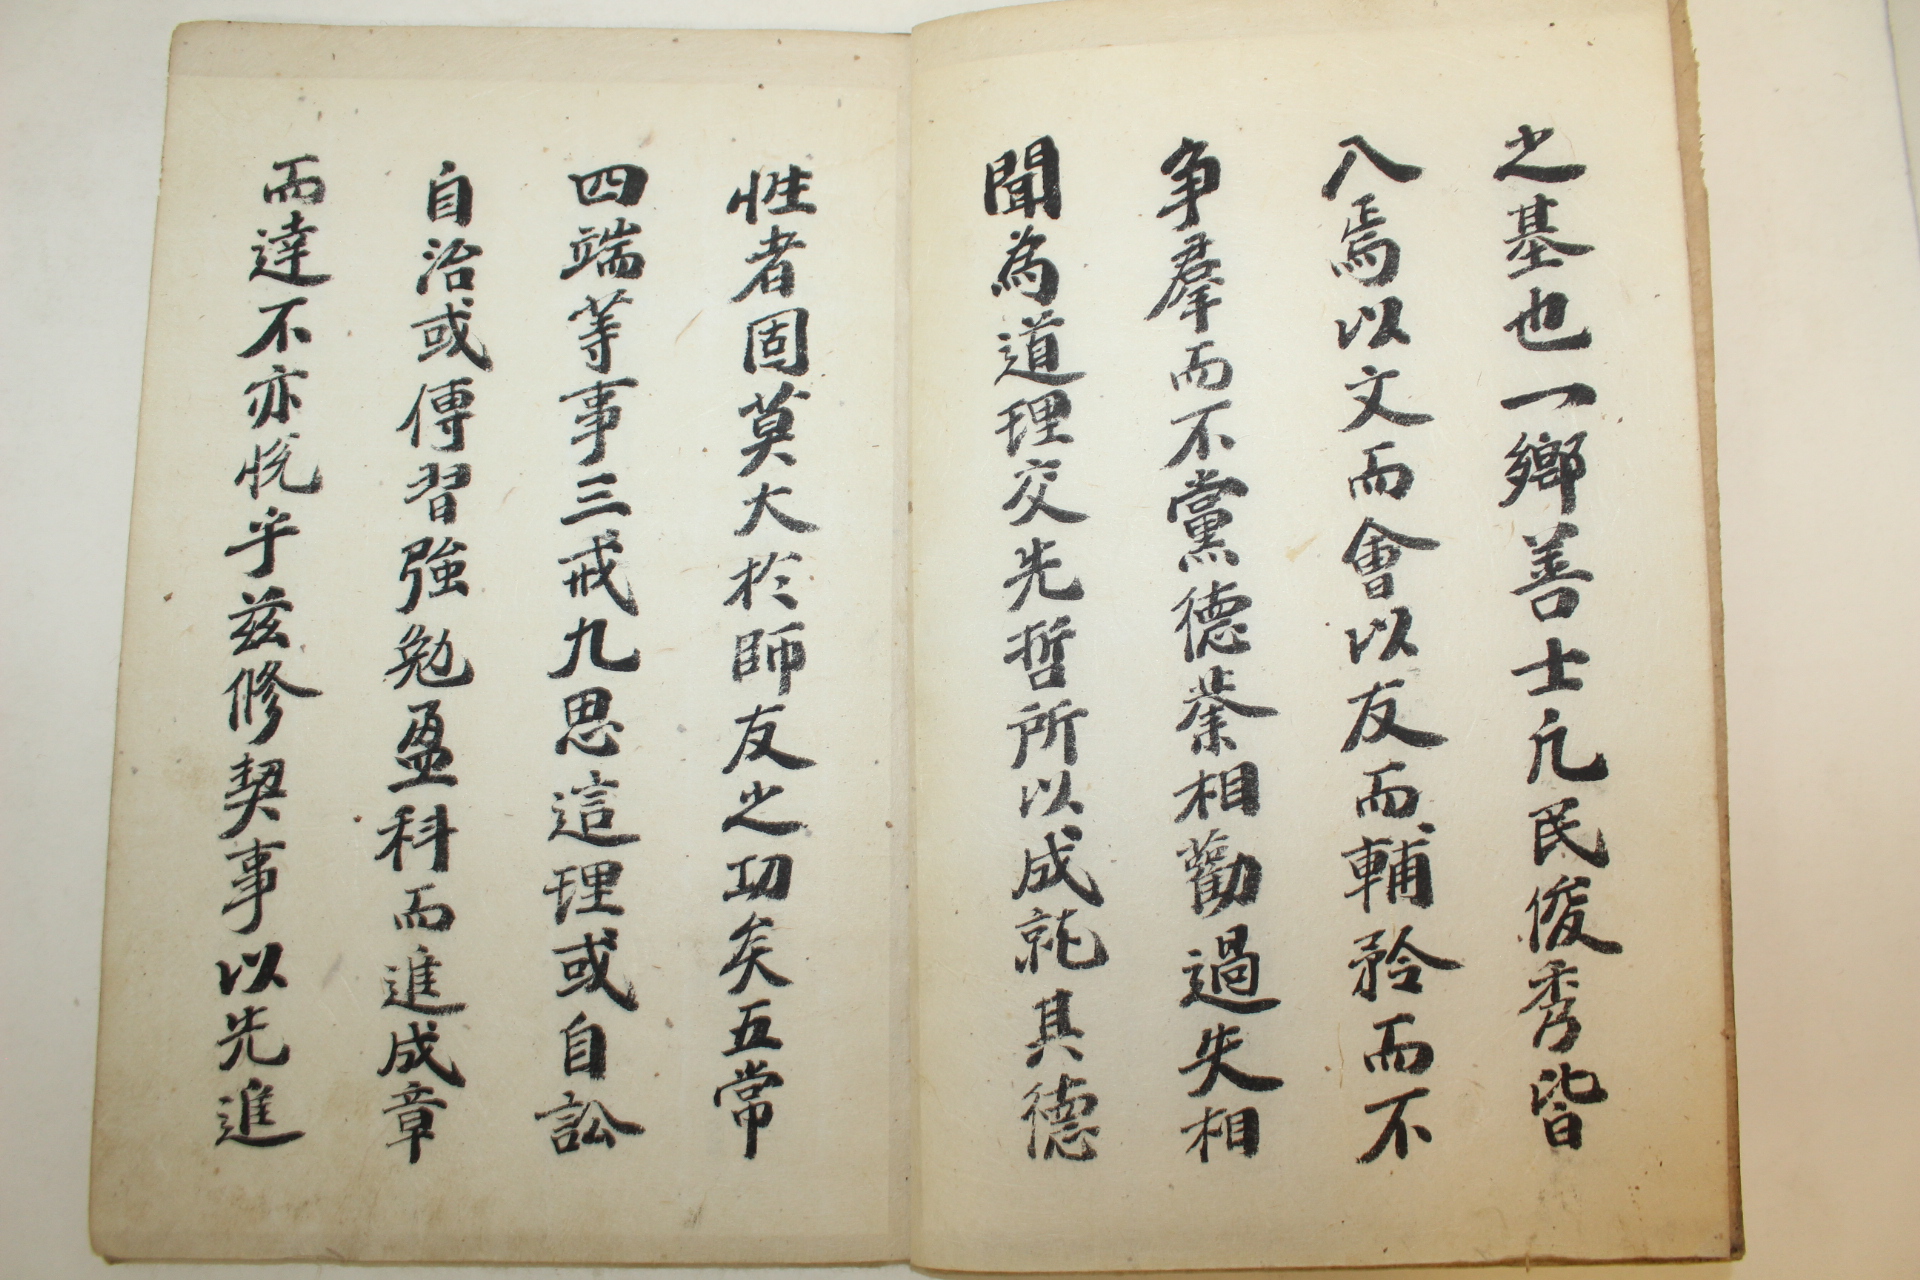 之基也一鄕善士凡民俊秀皆
入焉以文而會以友而輔矜而不
争羣而不黨德業相勸過失相
聞為道理交先哲所以成就其德
性者固莫大於師友之功矣五常
四端等事三戒九思這理或自訟
自治或傳習強勉盈科而進成章
而達不亦悅乎玆修契事以先進